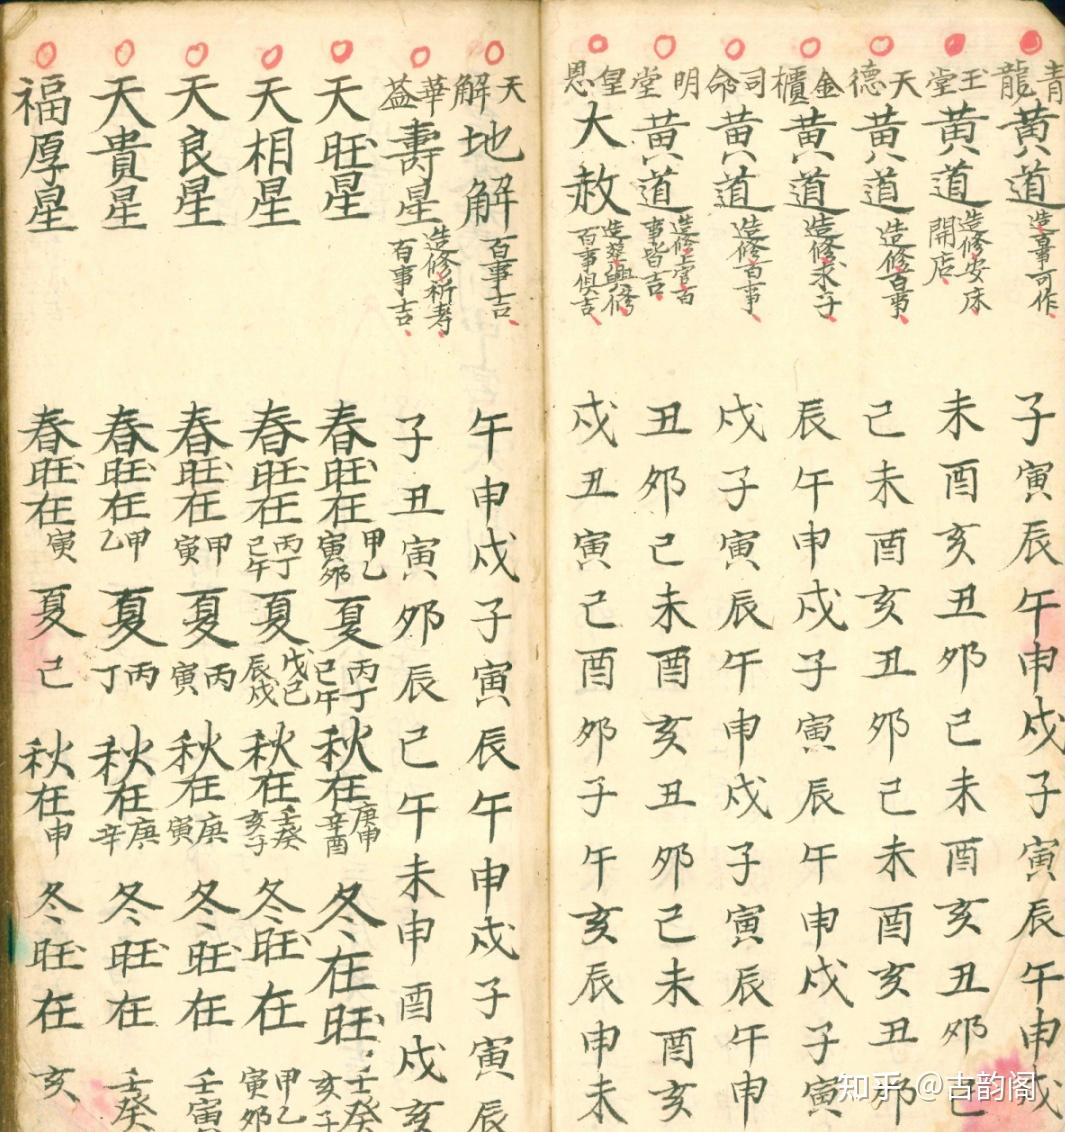 青龍黃道 造事可作 子寅辰午申戌子寅辰午申戌
玉堂黃道 造修安床開店 未酉亥丑卯巳未酉亥丑卯巳
天德黃道 造修百事 巳未酉亥丑卯巳未酉亥丑卯
金櫃黃道 造修求子 辰午申戌子寅辰午申戌子寅
司命黃道 造修百事 戌子寅辰午申戌子寅辰午申
明堂黃道 造修百事皆吉 丑卯巳未酉亥丑卯巳未酉亥
皇恩大赦 造葬興修百事俱吉 戌丑寅巳酉卯子午亥辰申未
天解地解 百事吉 午申戌子寅辰午申戌子寅辰
華蓋壽星 造修祈壽百事吉 子丑寅卯辰巳午未申酉戌亥
天旺星 春旺在甲乙寅卯 夏丙丁巳午 秋在庚申辛酉 冬在旺壬癸亥子
天相星 春旺在丙丁巳午 夏戊己辰戌 秋在壬癸亥子 冬旺在甲乙寅卯
天良星 春旺在甲寅 夏丙寅 秋在庚寅 冬旺在壬寅
天貴星 春旺在甲乙 夏丙丁 秋在庚辛 冬旺在壬癸
福厚星 春旺在寅 夏巳 秋在申 冬旺在亥
知乎 @古韵阁